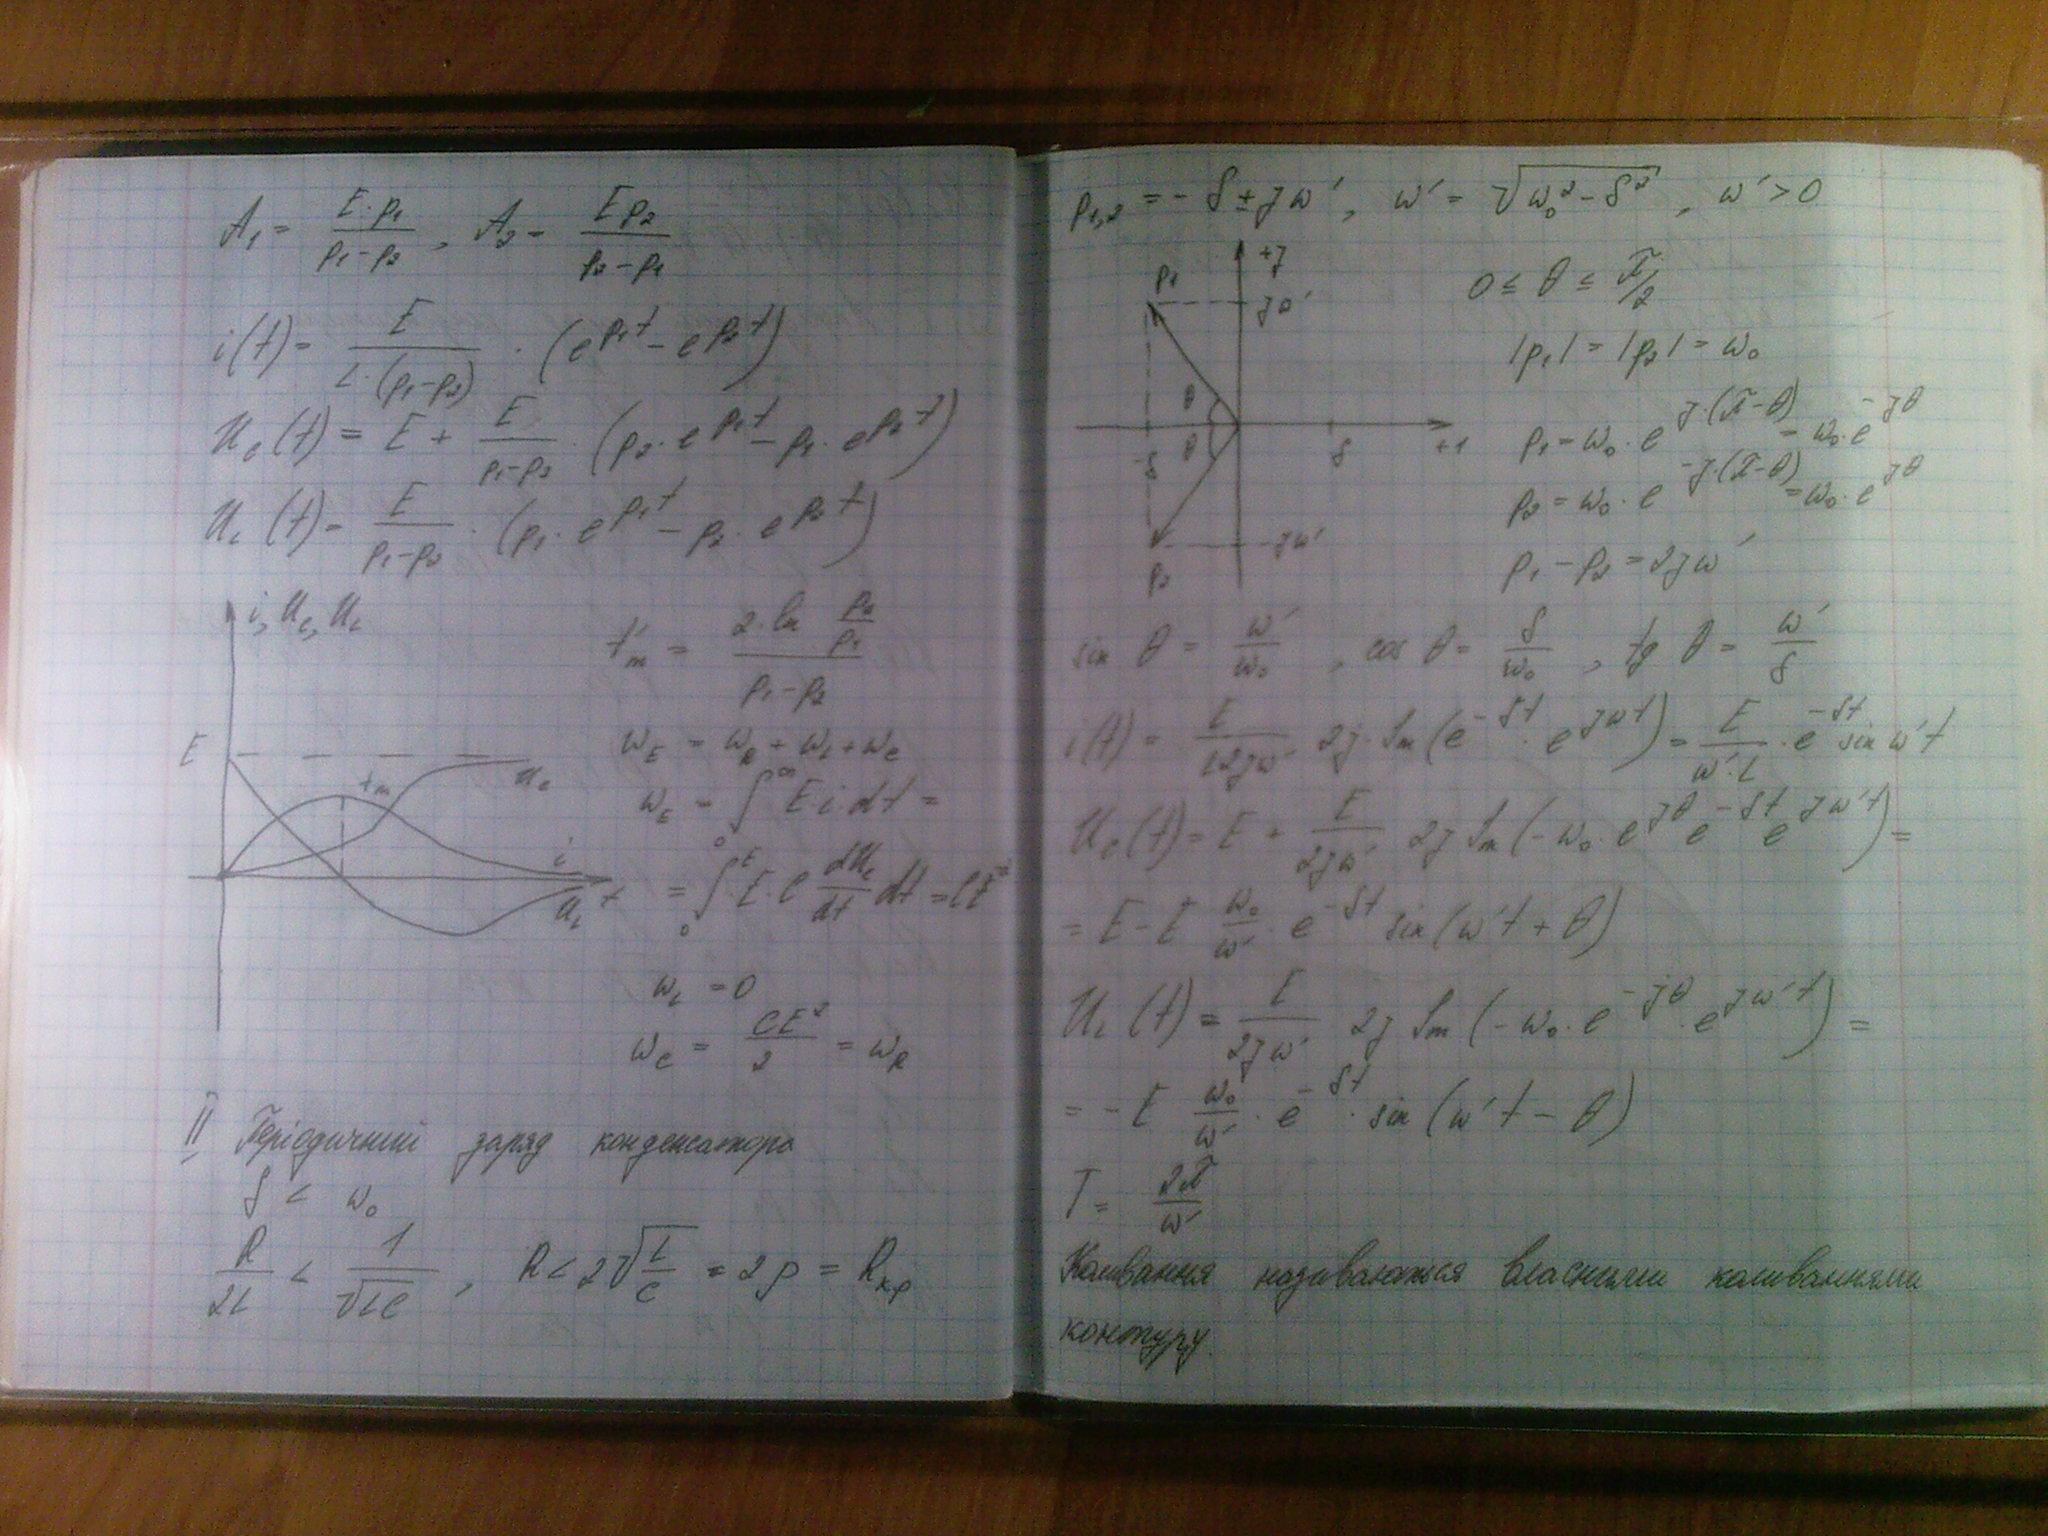 A₁ = E·p₁/(p₁-p₂), A₂ = Ep₂/(p₂-p₁)
i(t) = E/(L·(p₁-p₂)) · (e^(p₁t) - e^(p₂t))
U_c(t) = E + E/(p₁-p₂) · (p₂·e^(p₁t) - p₁·e^(p₂t))
U_L(t) = E/(p₁-p₂) · (p₁·e^(p₁t) - p₂·e^(p₂t))
i, U_c, U_L
t'_m = 2·ln(p₂/p₁)/(p₁-p₂)
E
t_m
U_c
i
U_L
t
w_E = w_R + w_L + w_C
w_E = ∫₀^∞ E·i·dt =
= ∫₀^E E·C dU_c/dt dt = CE²
w_L = 0
w_C = CE²/2 = w_R
II Періодичний заряд конденсатора
δ < ω₀
R/2L < 1/√LC, R < 2√(L/C) = 2ρ = R_кр
p₁,₂ = -δ ± jω', ω' = √(ω₀² - δ²), ω' > 0
+j
p₁
jω'
θ
θ
-δ
δ
+1
-jω'
p₂
0 ≤ θ ≤ π/2
|p₁| = |p₂| = ω₀
p₁ = ω₀·e^(j·(π-θ)) = ω₀·e^(-jθ)
p₂ = ω₀·e^(-j·(π-θ)) = ω₀·e^(jθ)
p₁ - p₂ = 2jω'
sin θ = ω'/ω₀, cos θ = δ/ω₀, tg θ = ω'/δ
i(t) = E/(L2jω') 2j·Im(e^(-δt)·e^(jωt)) = E/(ω'·L)·e^(-δt) sin ω't
U_c(t) = E + E/(2jω') 2j Im(-ω₀·e^(jθ) e^(-δt) e^(jω't)) =
= E - E ω₀/ω'·e^(-δt) sin(ω't + θ)
U_L(t) = E/(2jω') 2j Im(-ω₀·e^(-jθ)·e^(jω't)) =
= -E ω₀/ω'·e^(-δt)·sin(ω't - θ)
T = 2π/ω'
Коливання називаються власними коливаннями
контуру.